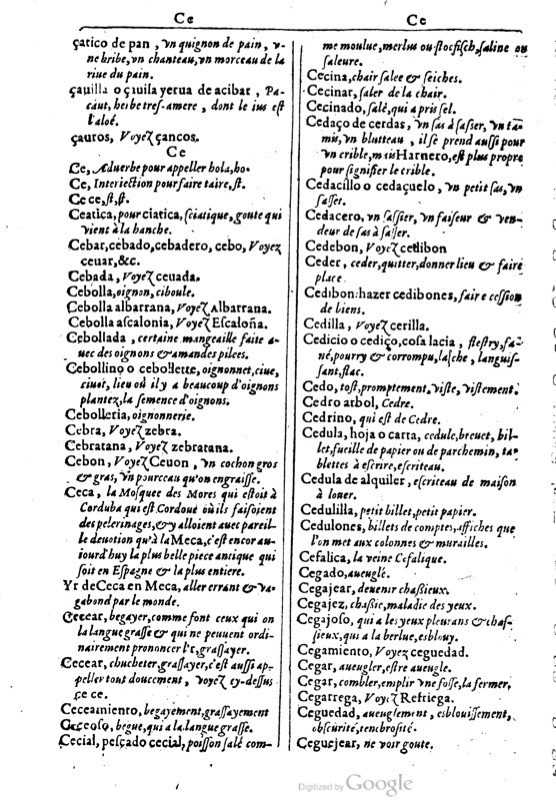 Ce
Ce
çatico de pan, vn quignon de pain, v-
ne bribe, vn chanteau, vn morceau de la
riue du pain.
çauilla o çiuila yerua de acibar, Pa-
caut, herbe tres-amere, dont le ius est
l'aloé.
çauros, Voyez çancos.
Ce
Ce, Aduerbe pour appeller hola, ho.
Ce, Interiection pour faire taire, st.
Ce ce, st, st.
Ceatica, pour ciatica, sciatique, goute qui
vient à la hanche.
Cebar, cebado, cebadero, cebo, Voyez
ceuar, &c.
Cebada, Voyez ceuada.
Cebolla, oignon, ciboule.
Cebolla albarrana, Voyez Albarrana.
Cebolla ascalonia, Voyez Escaloña.
Cebollada, certaine mangeaille faite a-
uec des oignons & amandes pilees.
Cebollino o cebollete, oignonnet, ciue,
ciuot, lieu où il y a beaucoup d'oignons
plantez, la semence d'oignons.
Cebolleria, oignonnerie.
Cebra, Voyez zebra.
Cebratana, Voyez zebratana.
Cebon, Voyez Ceuon, vn cochon gros
& gras, vn pourceau qu'on engraisse.
Ceca, la Mosquee des Mores qui estoit à
Corduba qui est Cordoué où ils faisoient
des pelerinages, & y alloient auec pareil-
le deuotion qu'à la Meca, c'est encor au-
iourd'huy la plus belle piece antique qui
soit en Espagne & la plus entiere.
Yr de Ceca en Meca, aller errant & va-
gabond par le monde.
Cecear, begayer, comme font ceux qui on
la langue grasse & qui ne peuuent ordi-
nairement prononcer l'r, grassayer.
Cecear, chucheter, grassayer, c'est aussi ap-
peller tout doucement, voyez cy-dessus
ce ce.
Ceceamiento, begayement, grassayement
Ceceoso, begue, qui a la langue grasse.
Cecial, pescado cecial, poisson salé com-
me moulue, merlus ou stocfisch, saline ou
saleure.
Cecina, chair salee & seiches.
Cecinar, saler de la chair.
Cecinado, salé, qui a pris sel.
Cedaço de cerdas, vn sas à sasser, vn ta-
mis, vn blutteau, il se prend aussi pour
vn crible, mais Harnero, est plus propre
pour signifier le crible.
Cedacillo o cedaçuelo, vn petit sas, vn
sasset.
Cedacero, vn sassier, vn faiseur & ven-
deur de sas à sasser.
Cedebon, Voyez cetibon
Ceder, ceder, quitter, donner lieu & faire
place.
Cedibon: hazer cedibones, faire cession
de biens.
Cedilla, Voyez cerilla.
Cedicio o cediço, cosa lacia, flestry, fa-
né, pourry & corrompu, lasche, languis-
sant, flac.
Cedo, tost, promptement, viste, vistement.
Cedro arbol, Cedre.
Cedrino, qui est de Cedre.
Cedula, hoja o carta, cedule, breuet, bil-
let, fueille de papier ou de parchemin, ta-
blettes à escrire, escriteau.
Cedula de alquiler, escriteau de maison
à loüer.
Cedulilla, petit billet, petit papier.
Cedulones, billets de comptes, affiches que
l'on met aux colonnes & murailles.
Cefalica, la veine Cefalique.
Cegado, aueuglé.
Cegajear, deuenir chassieux.
Cegajez, chassie, maladie des yeux.
Cegajoso, qui a les yeux pleurans & chas-
sieux, qui a la berlue, esblouy.
Cegamiento, Voyez ceguedad.
Cegar, aueugler, estre aueugle.
Cegar, combler, emplir vne fosse, la fermer,
Cegarrega, Voyez Refriega.
Ceguedad, aueuglement, esblouissement,
obscurité, tenebrosité.
Ceguejear, ne voir goute.
Digitized by Google